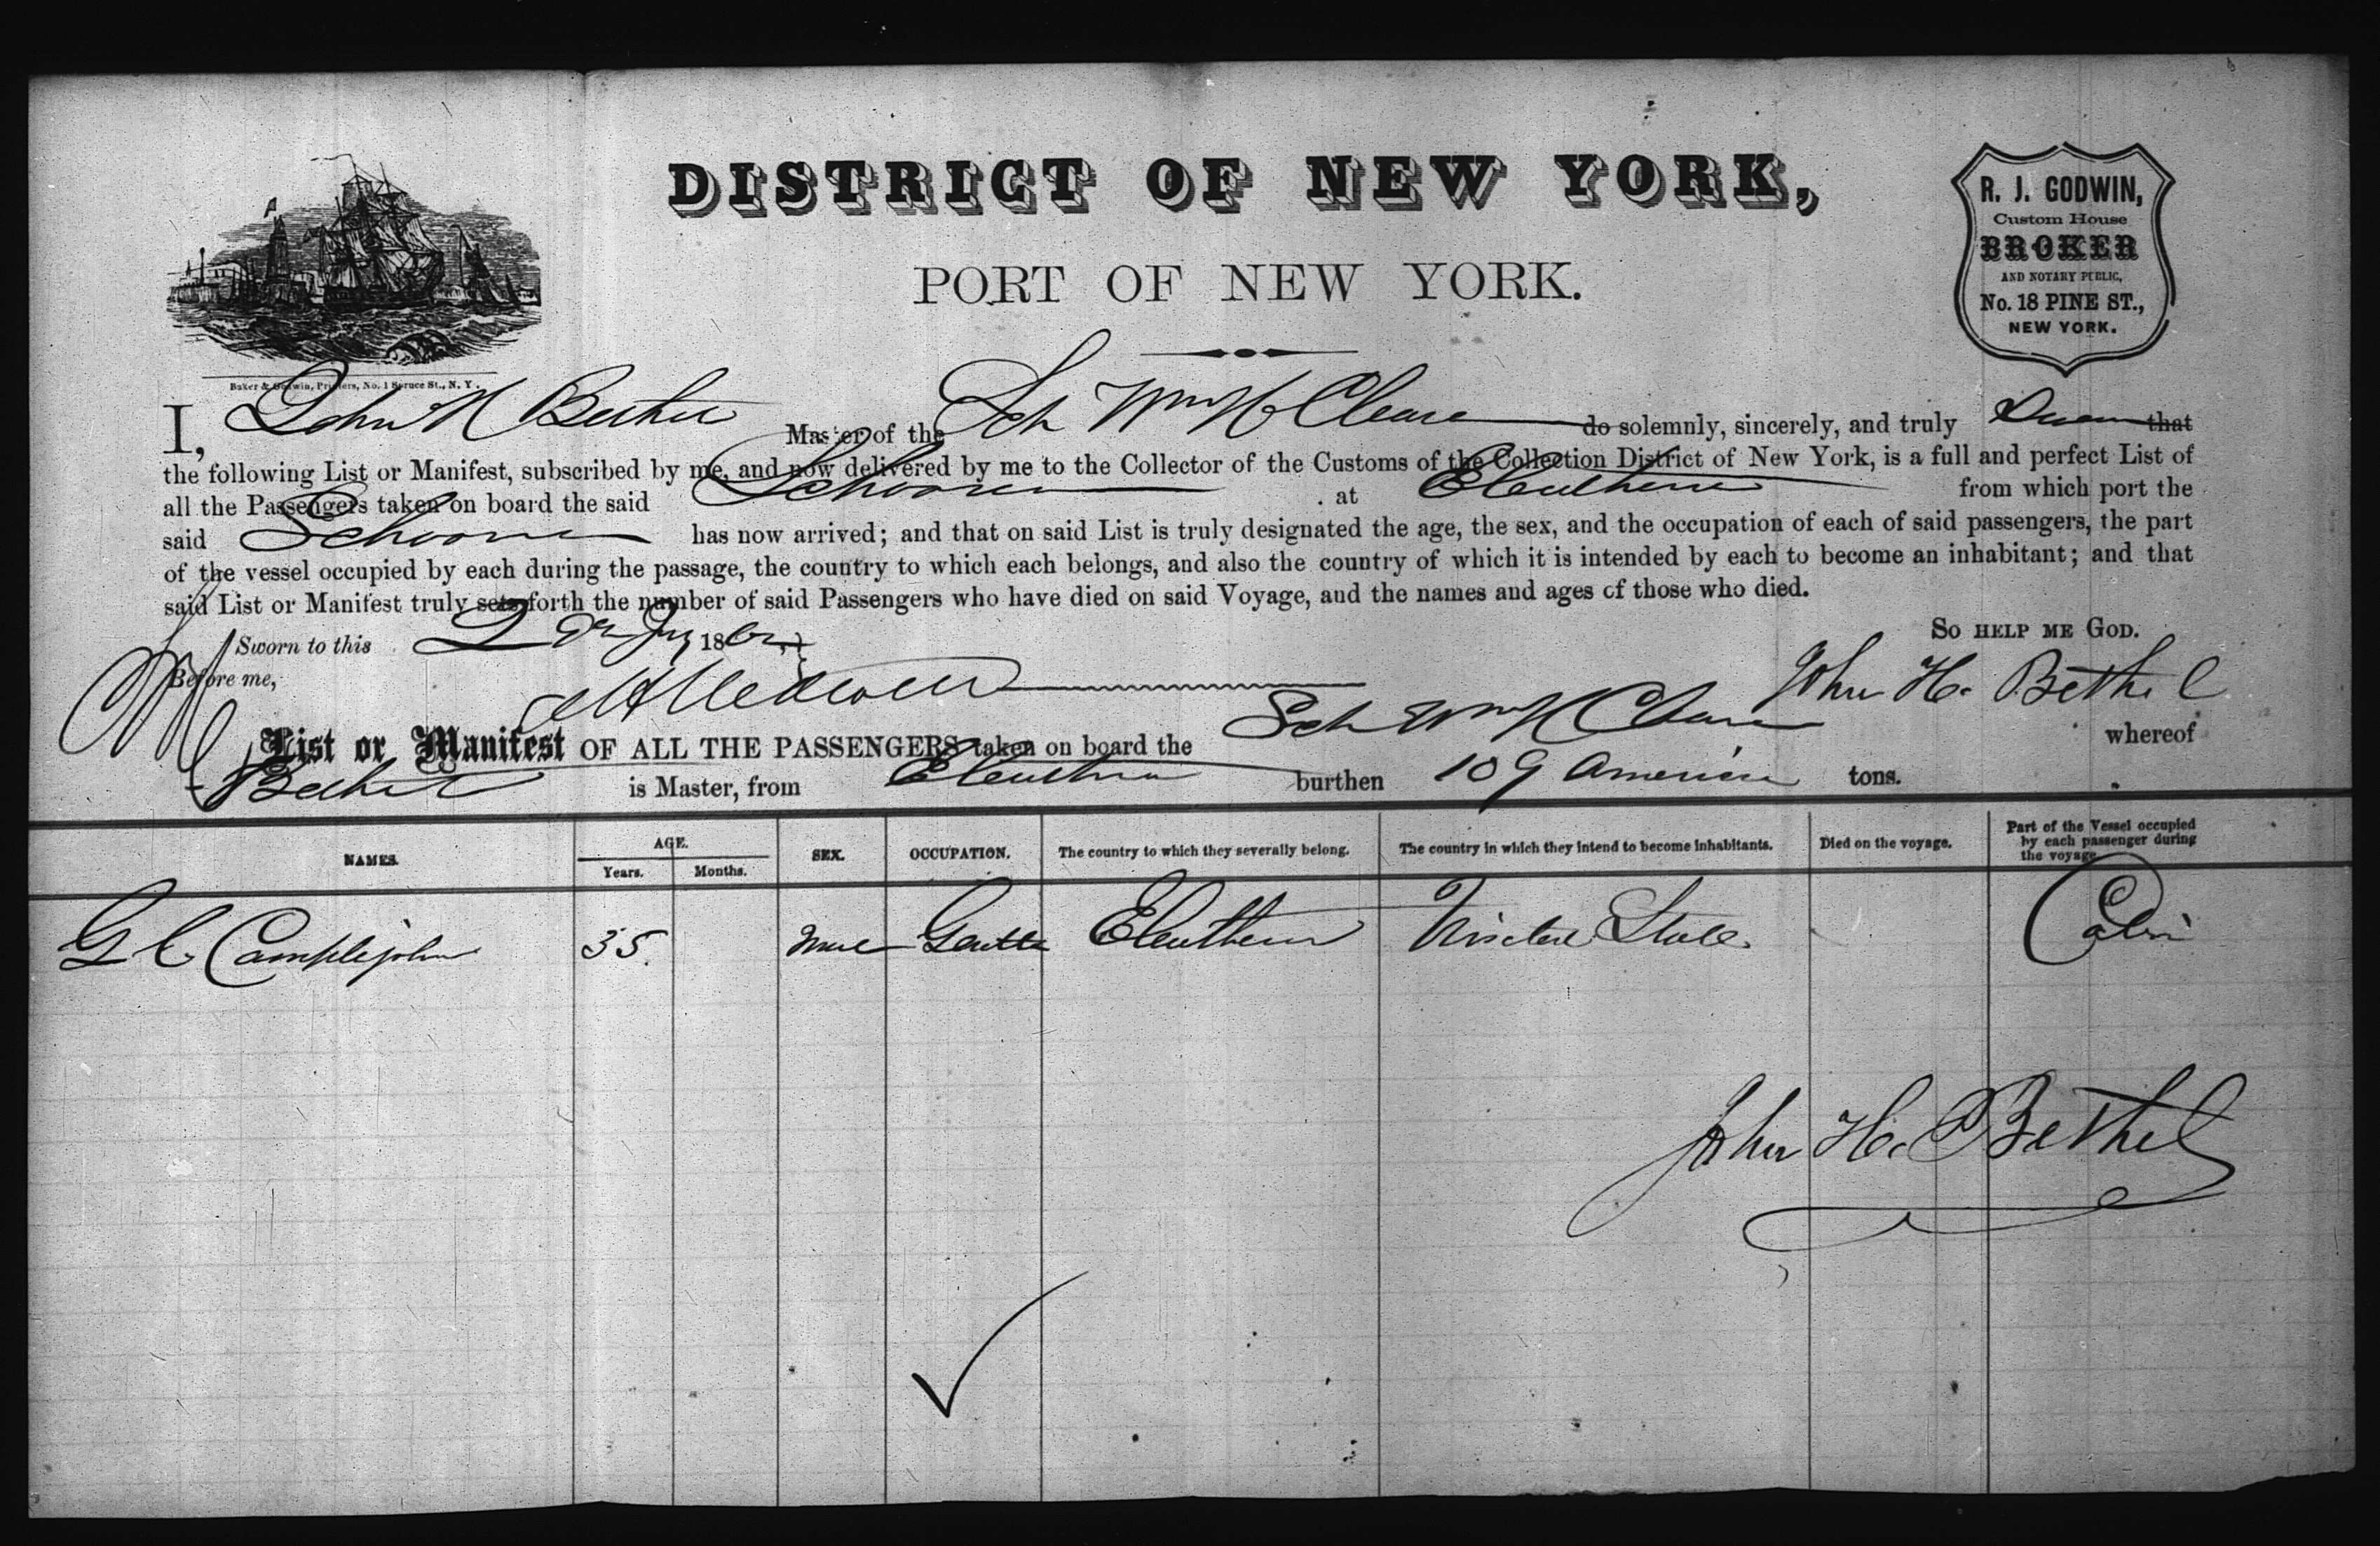 DISTRICT OF NEW YORK,
PORT OF NEW YORK.
R. J. GODWIN,
Custom House
BROKER
AND NOTARY PUBLIC,
No. 18 PINE ST.,
NEW YORK.
Baker & Godwin, Printers, No. 1 Spruce St., N. Y.
I, John H Bethel Master of the Sch Wm H Cleare do solemnly, sincerely, and truly Swear that
the following List or Manifest, subscribed by me, and now delivered by me to the Collector of the Customs of the Collection District of New York, is a full and perfect List of
all the Passengers taken on board the said Schooner at Eleuthera from which port the
said Schooner has now arrived; and that on said List is truly designated the age, the sex, and the occupation of each of said passengers, the part
of the vessel occupied by each during the passage, the country to which each belongs, and also the country of which it is intended by each to become an inhabitant; and that
said List or Manifest truly sets forth the number of said Passengers who have died on said Voyage, and the names and ages of those who died.
So HELP ME GOD.
Sworn to this 2 1862
Before me,
John H. Bethel
List or Manifest OF ALL THE PASSENGERS taken on board the Sch Wm H Cleare whereof
Bethel is Master, from Eleuthera burthen 109 American tons.
NAMES. AGE. SEX. OCCUPATION. The country to which they severally belong. The country in which they intend to become inhabitants. Died on the voyage. Part of the Vessel occupied by each passenger during the voyage.
Years. Months.
G C Camplejohn 35 Male Gentle Eleuthera United States Cabin
John H. Bethel